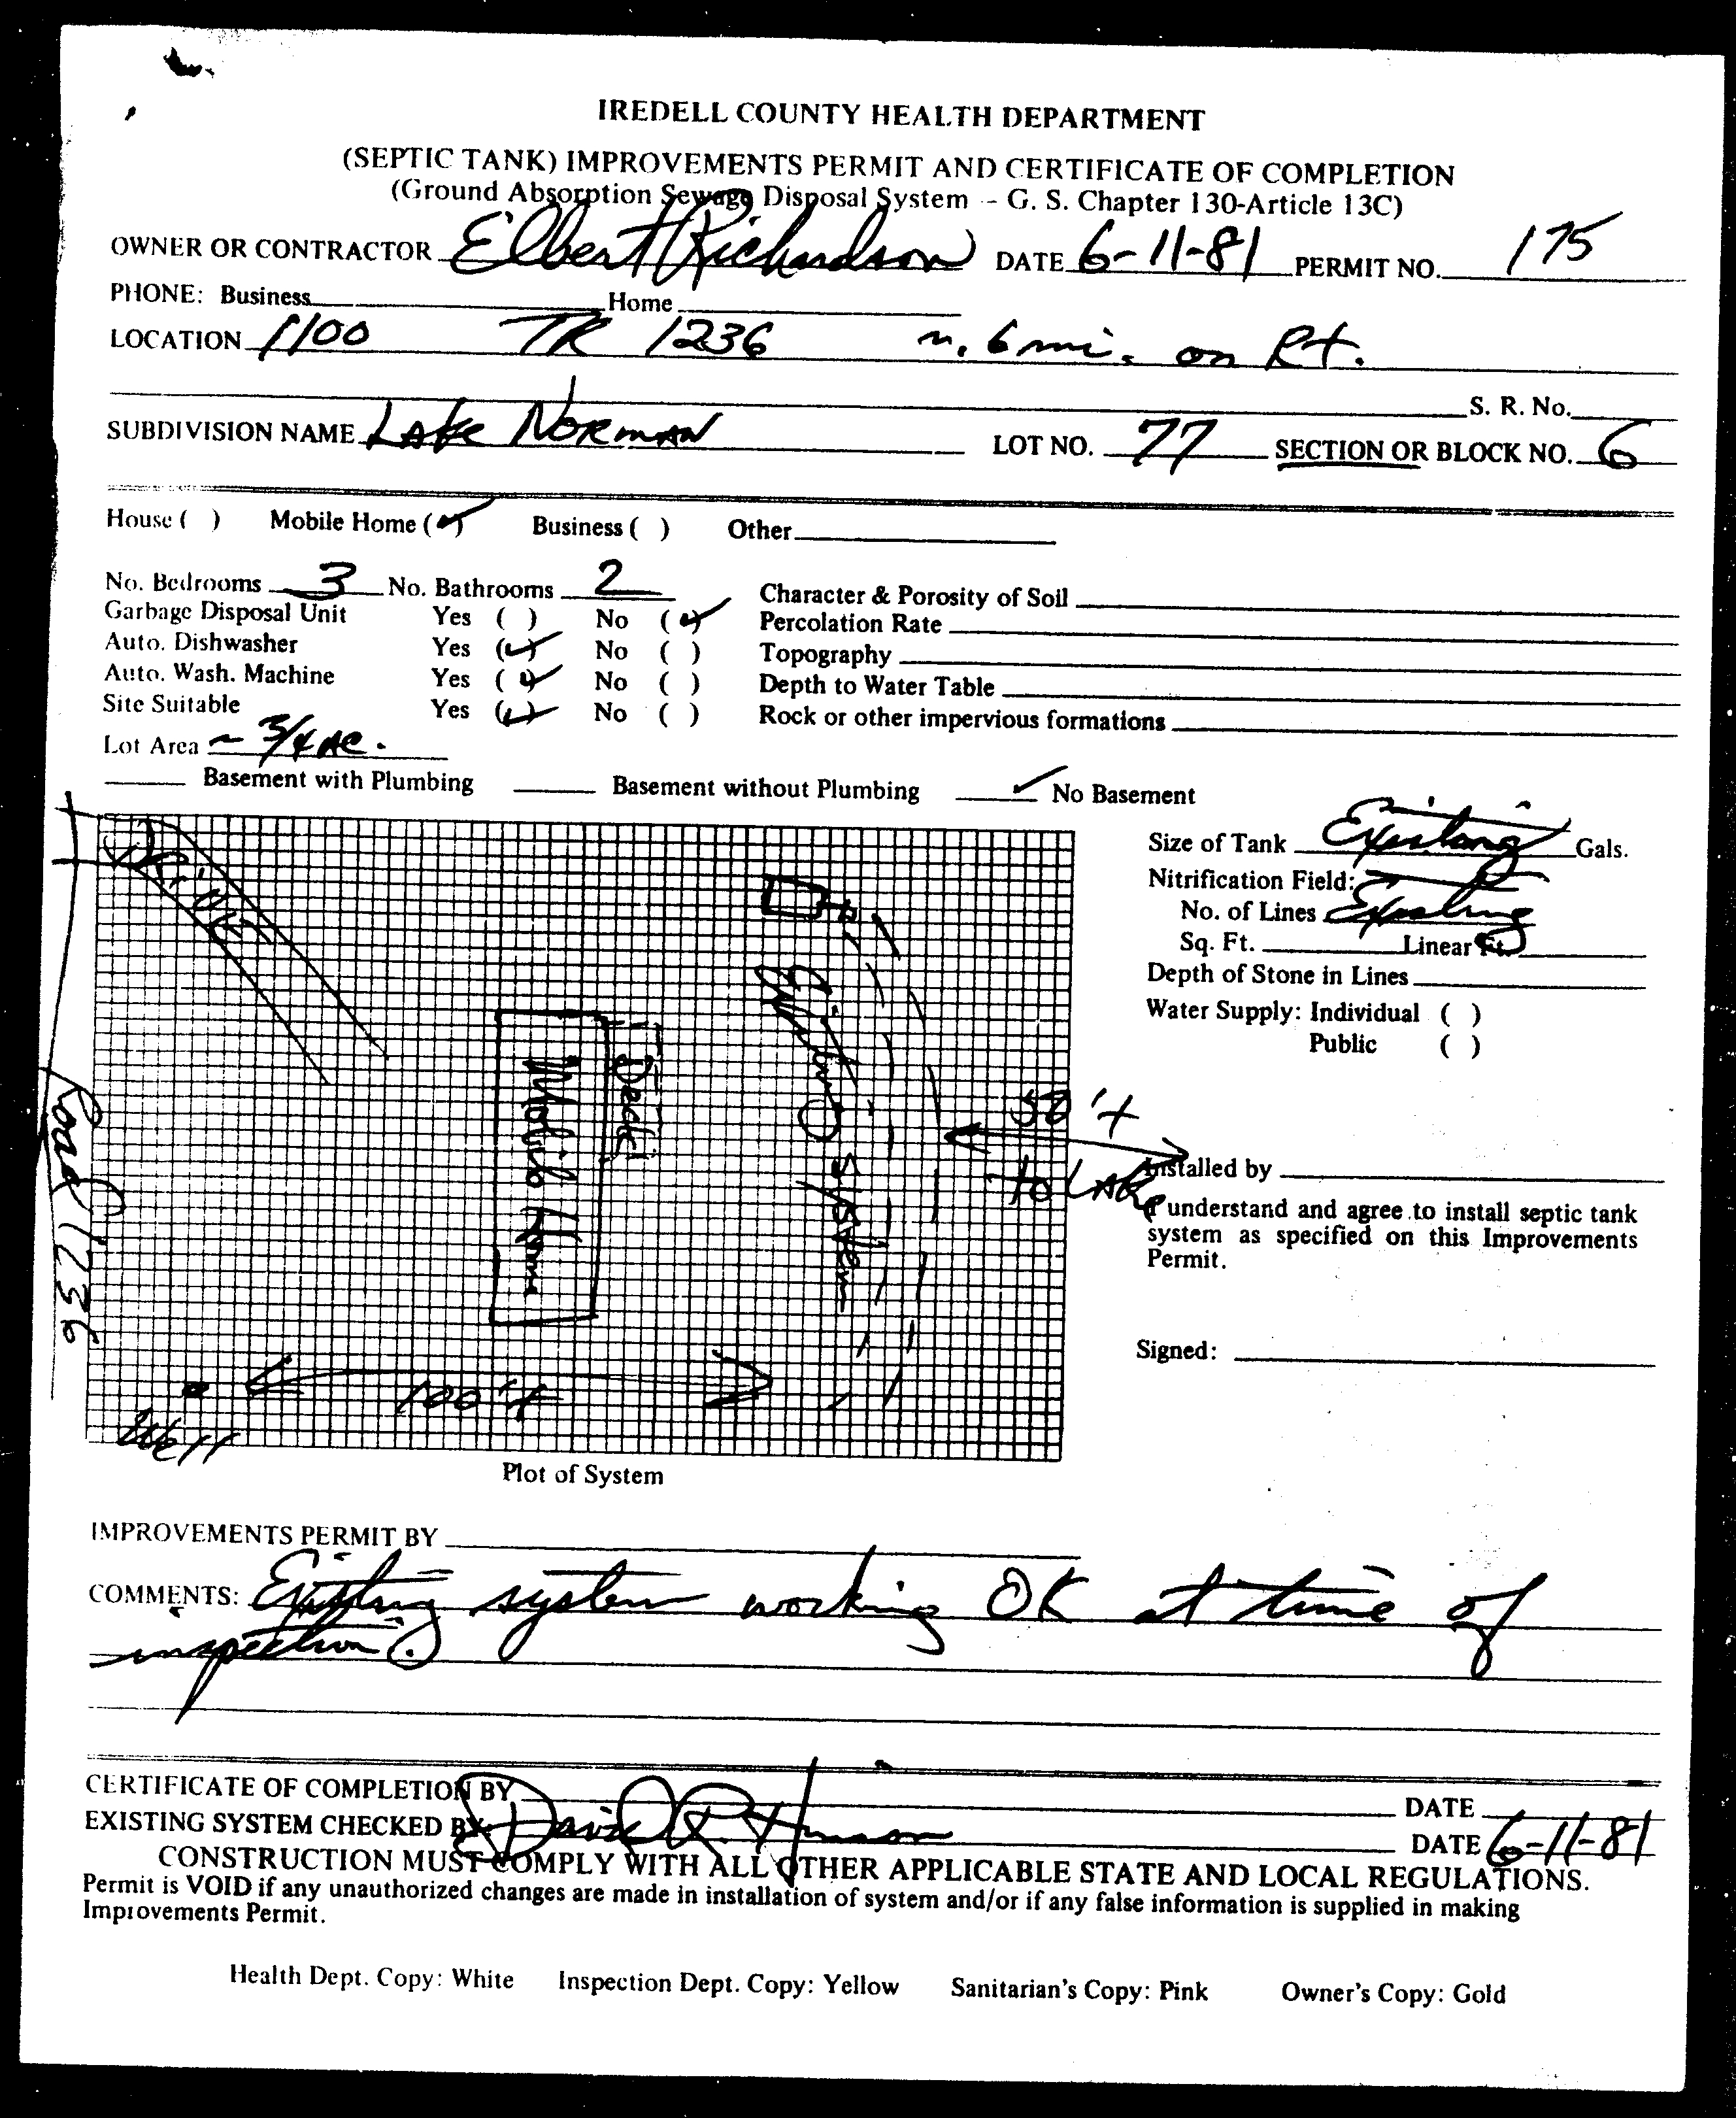 IREDELL COUNTY HEALTH DEPARTMENT
(SEPTIC TANK) IMPROVEMENTS PERMIT AND CERTIFICATE OF COMPLETION
(Ground Absorption Sewage Disposal System - G. S. Chapter 130-Article 13C)
OWNER OR CONTRACTOR Elbert Richardson DATE 6-11-81 PERMIT NO. 175
PHONE: Business Home
LOCATION 1100 TR 1236 n. 6 mi. on Rt.
S. R. No.
SUBDIVISION NAME Lake Norman LOT NO. 77 SECTION OR BLOCK NO. 6
House ( ) Mobile Home (✓) Business ( ) Other
No. Bedrooms 3 No. Bathrooms 2 Character & Porosity of Soil
Garbage Disposal Unit Yes ( ) No (✓) Percolation Rate
Auto. Dishwasher Yes (✓) No ( ) Topography
Auto. Wash. Machine Yes (✓) No ( ) Depth to Water Table
Site Suitable Yes (✓) No ( ) Rock or other impervious formations
Lot Area ~ 3/4 AC.
Basement with Plumbing Basement without Plumbing ✓ No Basement
Size of Tank Existing Gals.
Nitrification Field:
No. of Lines Existing
Sq. Ft. Linear Ft.
Depth of Stone in Lines
Water Supply: Individual ( )
Public ( )
Drive
Mobile Home
Deck
Existing System
50'+
to Lake
Road 1236
100'+
Well
Installed by
I understand and agree to install septic tank
system as specified on this Improvements
Permit.
Signed:
Plot of System
IMPROVEMENTS PERMIT BY
COMMENTS: Existing system working OK at time of
inspection.
CERTIFICATE OF COMPLETION BY DATE
EXISTING SYSTEM CHECKED BY David R. DATE 6-11-81
CONSTRUCTION MUST COMPLY WITH ALL OTHER APPLICABLE STATE AND LOCAL REGULATIONS.
Permit is VOID if any unauthorized changes are made in installation of system and/or if any false information is supplied in making
Improvements Permit.
Health Dept. Copy: White Inspection Dept. Copy: Yellow Sanitarian's Copy: Pink Owner's Copy: Gold